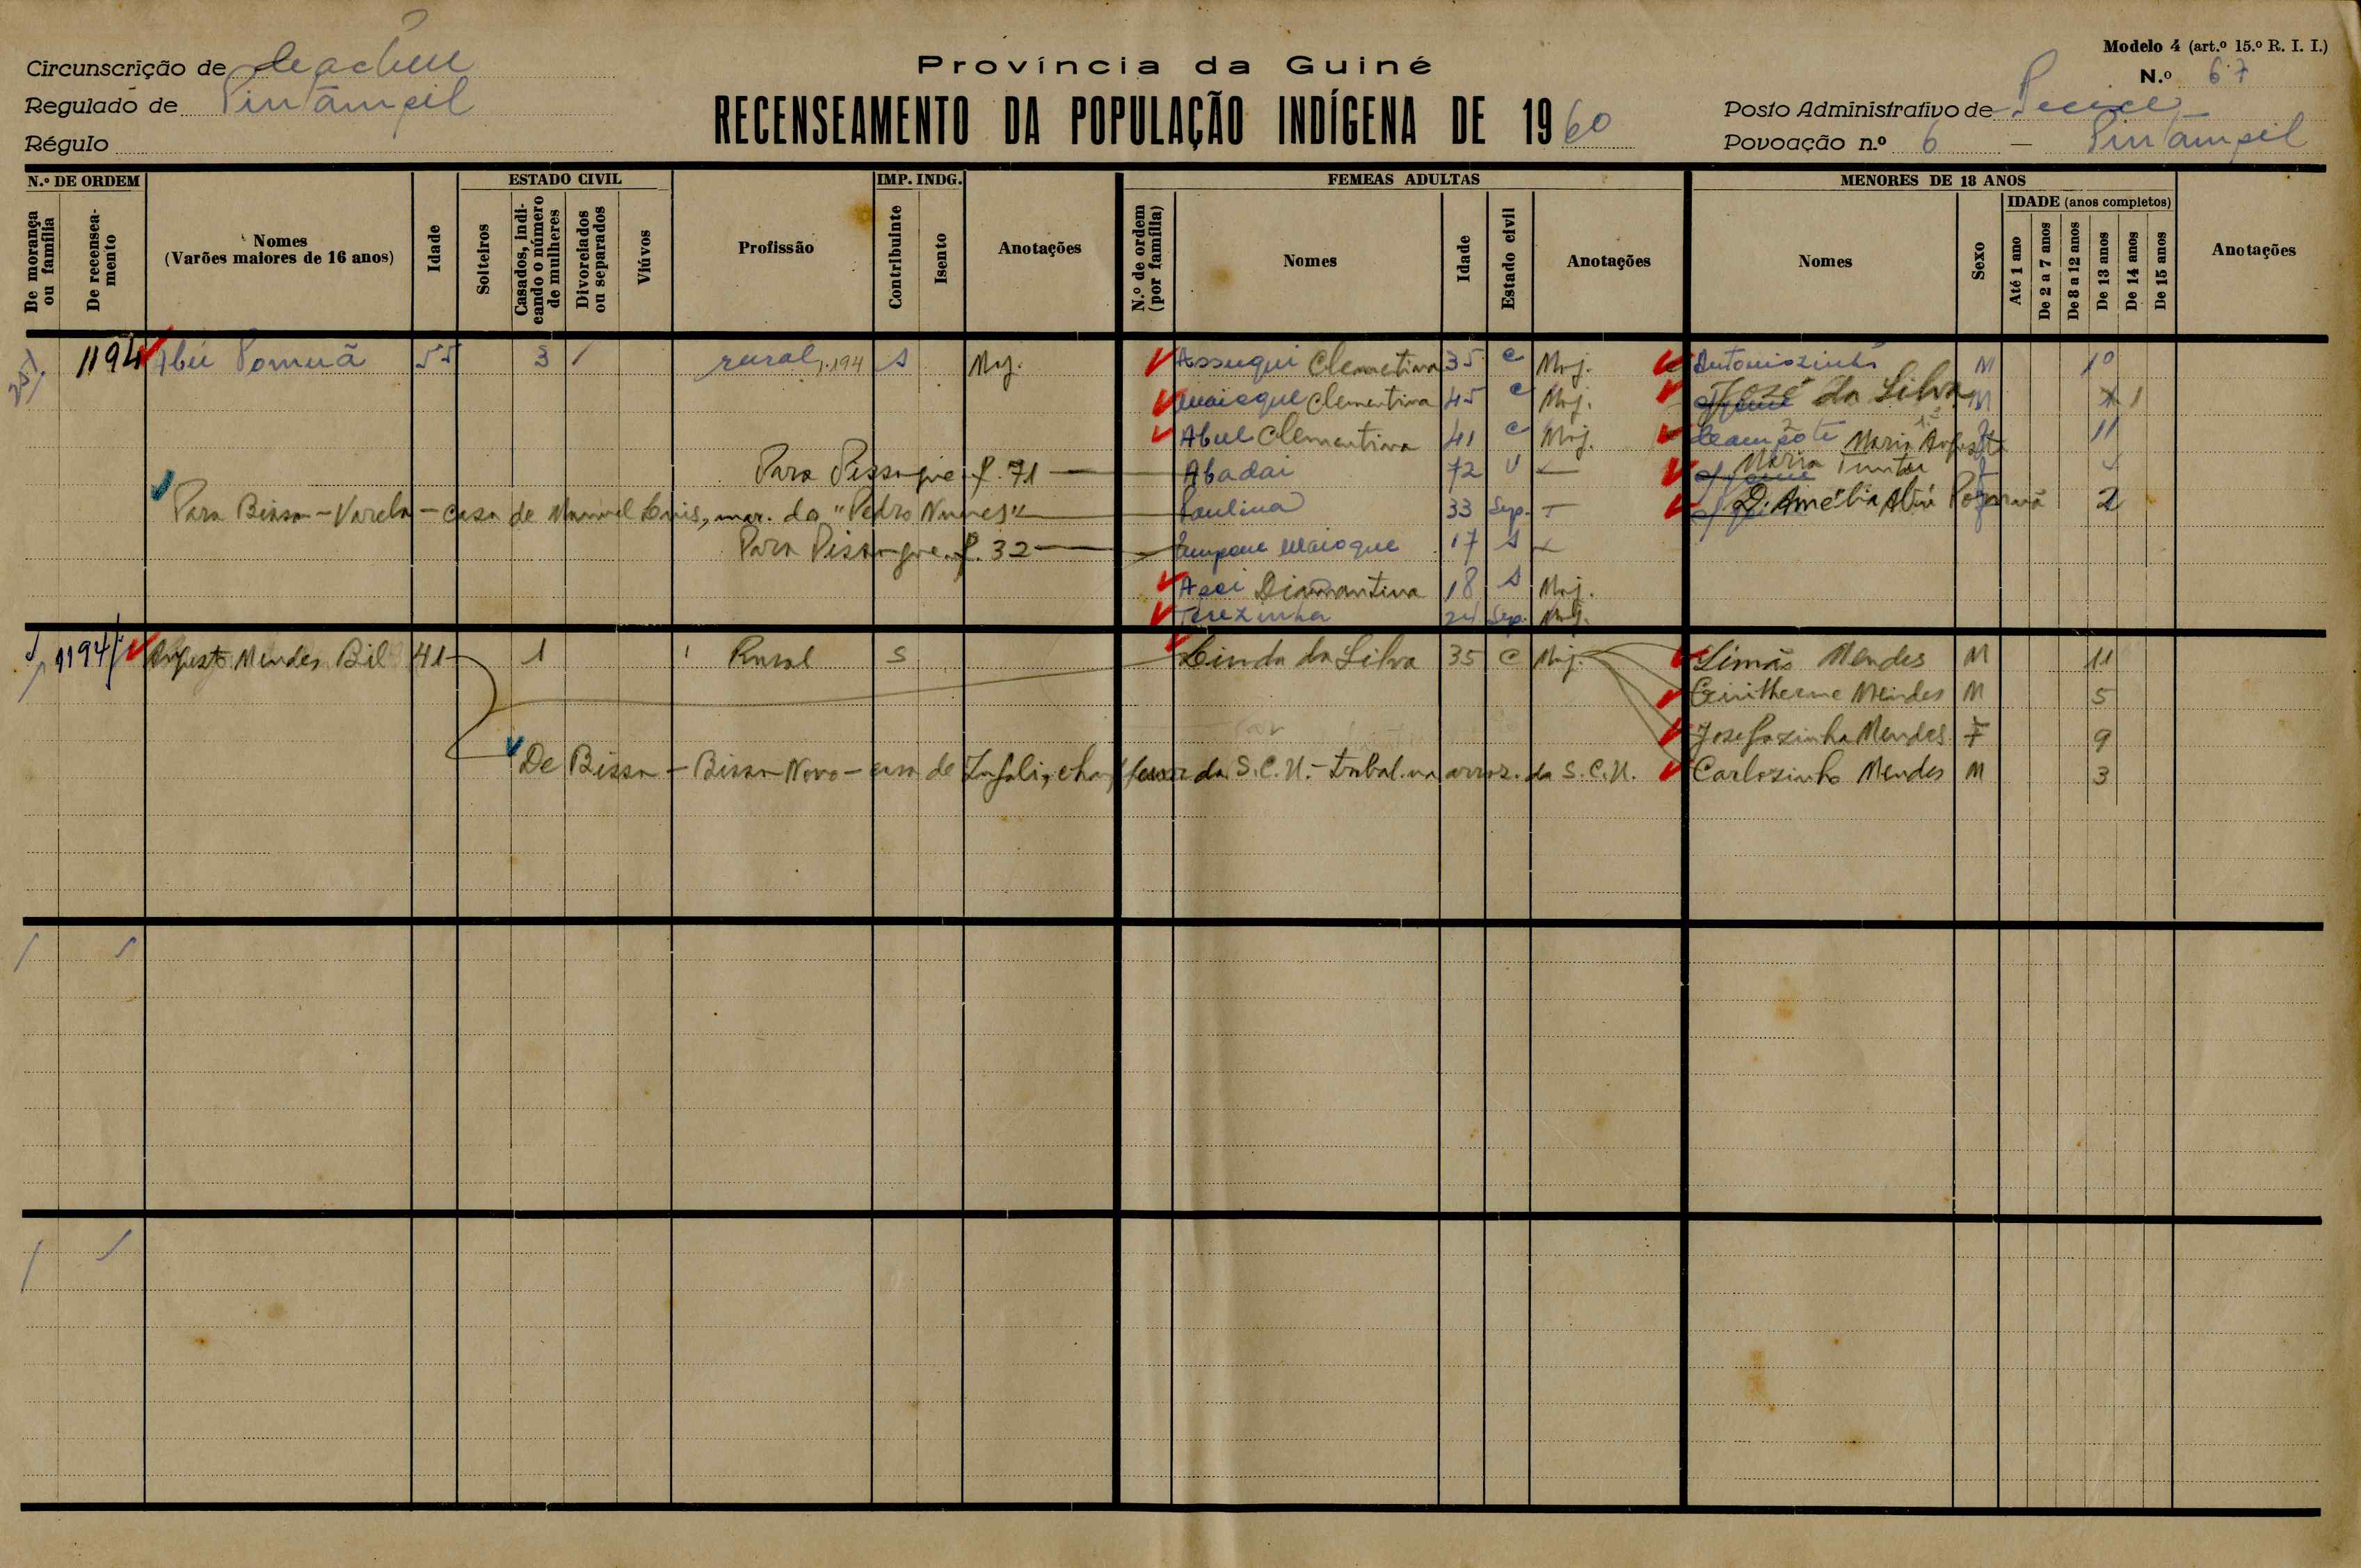 Modelo 4 (art.º 15.º R. I. I.)
Circunscrição de Cacheu
Província da Guiné
N.º 67
Regulado de Pintâmpil
RECENSEAMENTO DA POPULAÇÃO INDÍGENA DE 1960
Posto Administrativo de Pecixe
Régulo
Povoação n.º 6 — Pintâmpil
N.º DE ORDEM
ESTADO CIVIL
IMP. INDG.
FEMEAS ADULTAS
MENORES DE 18 ANOS
IDADE (anos completos)
De morança ou família
De recenseamento
Nomes (Varões maiores de 16 anos)
Idade
Solteiros
Casados, indicando o número de mulheres
Divorciados ou separados
Viúvos
Profissão
Contribuinte
Isento
Anotações
N.º de ordem (por família)
Nomes
Idade
Estado civil
Anotações
Nomes
Sexo
Até 1 ano
De 2 a 7 anos
De 8 a 12 anos
De 13 anos
De 14 anos
De 15 anos
Anotações
1194 Abú Pomuã 55 3 rural 1.194 S Mnj. Assuqui Clemetina 35 C Mnj. Antoniozinho M 10
Maioque Clementina 45 C Mnj. José da Silva M 1
Abul Clementina 41 C Mnj. Maria Augusta 11
Para Pissangue f. 71 — Abadai 72 V Maria Tunta
Para Bissau - Varela - casa de Manuel Luis, mar. do "Pedro Nunes" Paulina 33 Sep. D. Amélia Abú 2
Para Pissangue f. 32 — Maioque 17 S
Diamantina 18 S Mnj.
Terezinha 24 Sep. Mnj.
1194/1 Augusto Mendes Bil 41 1 Rural S Linda da Silva 35 C Mnj. Simão Mendes M 11
Guitherme Mendes M 5
Josefazinha Mendes F 9
De Bissau - Bissau Novo - casa de Infali, chauffeur da S.C.U. - trabal. na arroz. da S.C.U. Carlozinho Mendes M 3